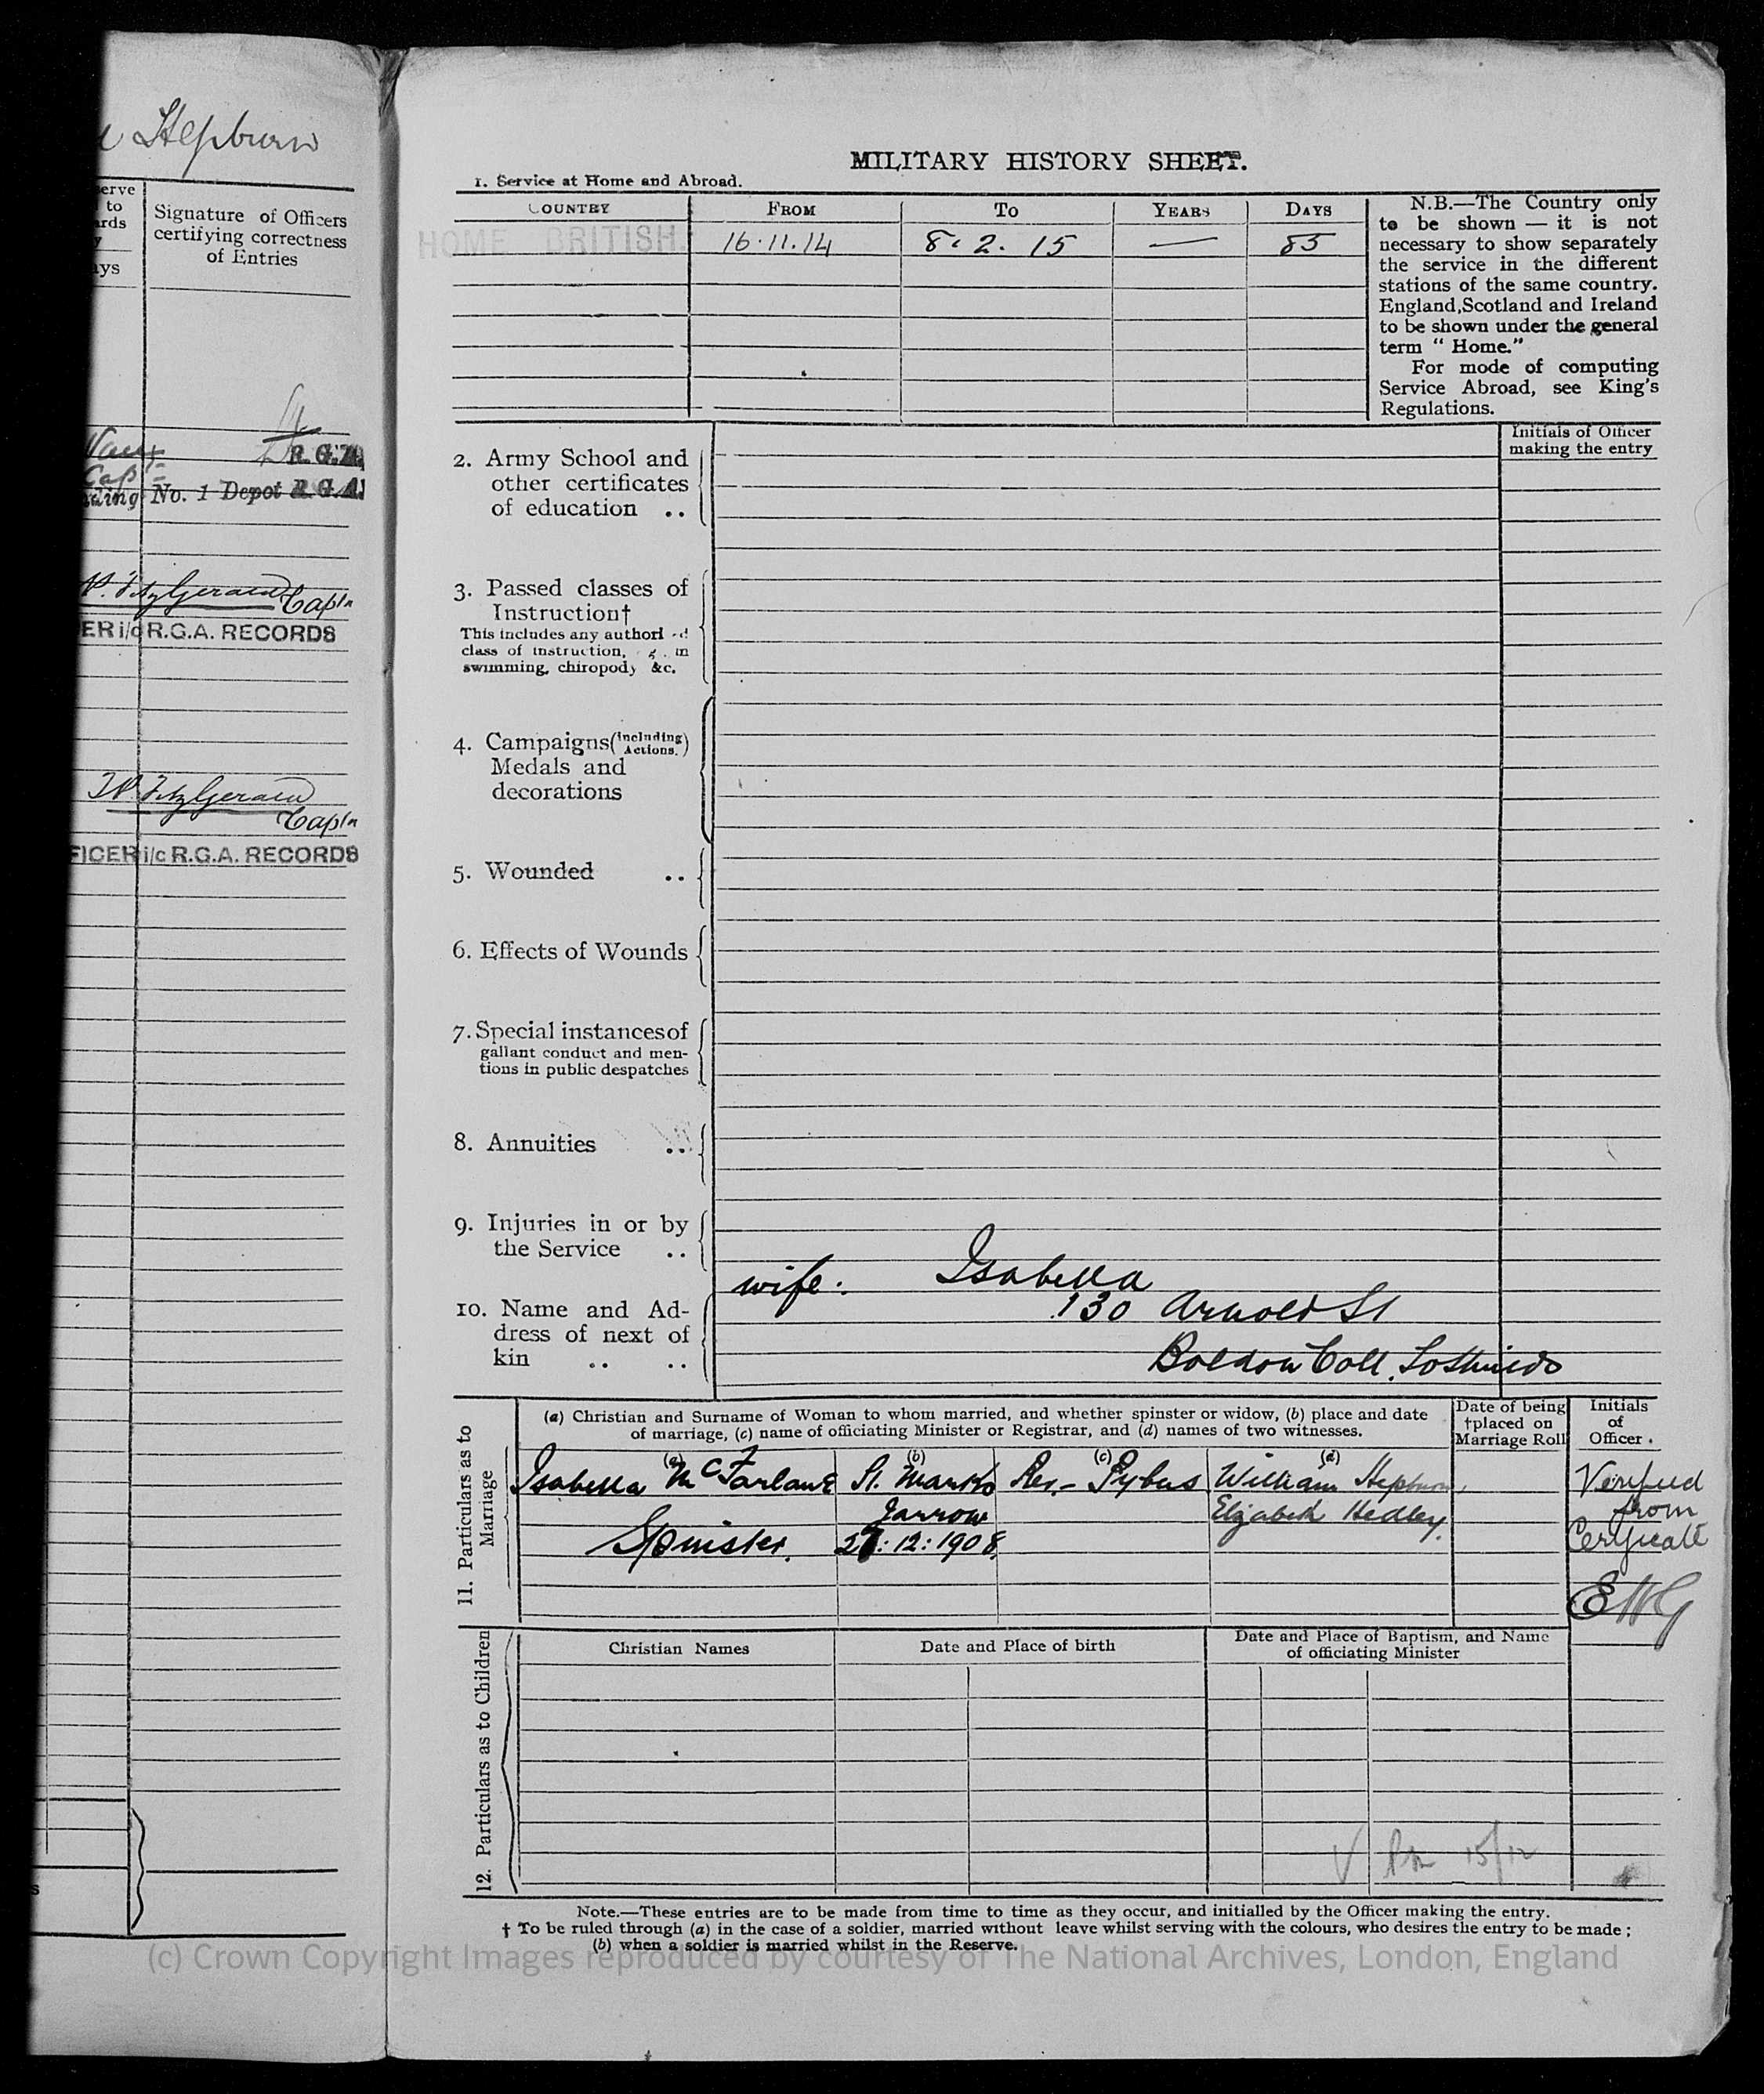 Hepburn
erve
to
ards
y
ays
Signature of Officers
certifying correctness
of Entries
R.G.A.
Cap
ading
No. 1 Depot R.G.A.
FitzGerald
Captn
ER i/c R.G.A. RECORDS
FitzGerald
Captn
FICER i/c R.G.A. RECORDS
s
MILITARY HISTORY SHEET.
1. Service at Home and Abroad.
COUNTRY FROM TO YEARS DAYS
HOME BRITISH. 16.11.14 8.2.15 — 85
N.B.—The Country only
to be shown — it is not
necessary to show separately
the service in the different
stations of the same country.
England, Scotland and Ireland
to be shown under the general
term " Home."
For mode of computing
Service Abroad, see King's
Regulations.
Initials of Officer
making the entry
2. Army School and
other certificates
of education ..
3. Passed classes of
Instruction†
This includes any authori d
class of instruction, g. in
swimming, chiropody &c.
4. Campaigns (including Actions.)
Medals and
decorations
5. Wounded ..
6. Effects of Wounds
7. Special instances of
gallant conduct and men-
tions in public despatches
8. Annuities ..
9. Injuries in or by
the Service ..
10. Name and Ad-
dress of next of
kin .. ..
wife: Isabella
130 Arnold St
Boldon Coll. So Shields
11. Particulars as to
Marriage
(a) Christian and Surname of Woman to whom married, and whether spinster or widow, (b) place and date
of marriage, (c) name of officiating Minister or Registrar, and (d) names of two witnesses.
Date of being
†placed on
Marriage Roll
Initials
of
Officer.
(a) (b) (c) (d)
Isabella McFarlane St. Marks Rev.- Pybus William Hepburn
Jarrow Elizabeth Hedley.
Spinster. 27:12:1908.
Verified
from
Certificate
EWG
12. Particulars as to Children
Christian Names
Date and Place of birth
Date and Place of Baptism, and Name
of officiating Minister
15/12
Note.—These entries are to be made from time to time as they occur, and initialled by the Officer making the entry.
† To be ruled through (a) in the case of a soldier, married without leave whilst serving with the colours, who desires the entry to be made ;
(b) when a soldier is married whilst in the Reserve.
(c) Crown Copyright Images reproduced by courtesy of The National Archives, London, England